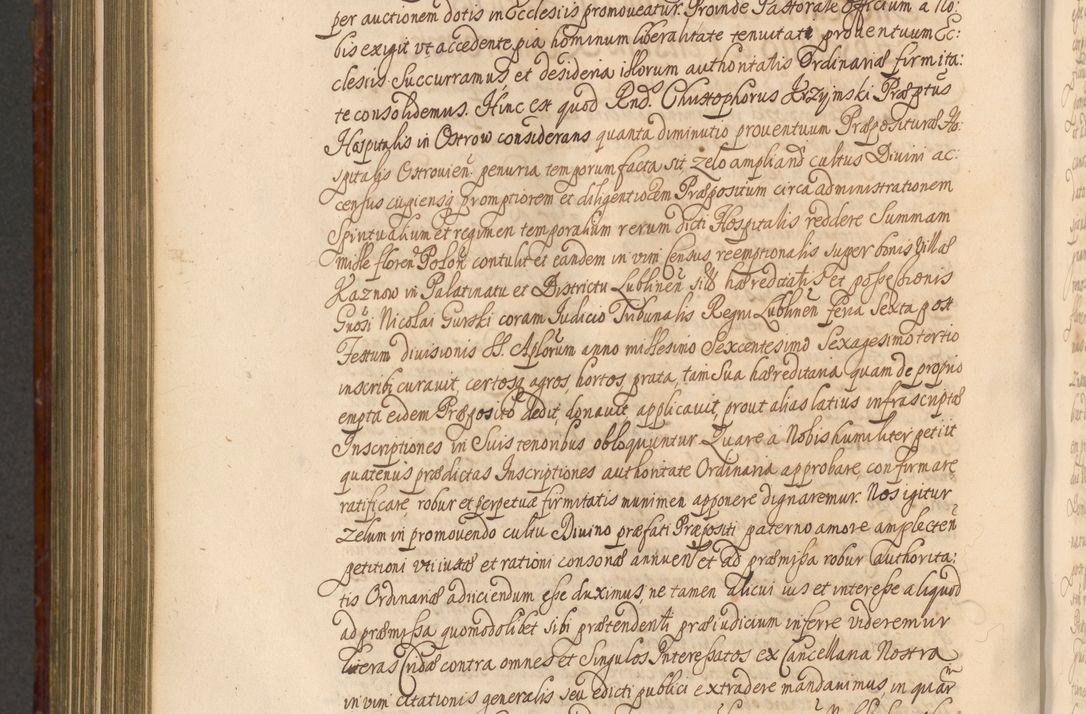 per auctionem dotis in Ecclesiis promoveatur. Proinde Pastorale Officium a No:
bis exigit vt accedente pia hominum liberalitate tenuitati proventuum Ec:
clesiis Succurramus et desideria illorum authoritatis Ordinariæ firmita:
te consolidemus. Hinc est quod Rnds Christophorus Krzyjmski Præptus
Hospitalis in Ostrow considerans quanta diminutio proventuum Præpositura Ho:
spitalis Ostrovien: penuria temporum facta sit zelo ampliand cultus Divini ac:
census cupiensq promptiorem et diligentiorem Præpositum circa administrationem
Spiritualium et regimen temporalium rerum dicti Hospitalis reddere Summam
mille floren Polon contulit et eandem in vim Census reemptionalis super bonis Villæ
Kaznow in Palatinatu et Districtu Lublinen sitis hæreditatis et possessionis
Gnosi Nicolai Gurski coram Iudicio Tribunalis Regni Lublinen feria Sexta post
Festum divisionis SS. Aplorum anno millesimo Sexcentesimo Sexagesimo tertio
inscribi curavit, certosq agros hortos prata, tam Sua hæreditaria quam de proprio
empta eidem Præposito dedit, donavit applicavit prout alias latius infrascriptæ
Inscriptiones in Suis tenoribus obloquuntur. Quare a Nobis humiliter petiit
quatenus prædictas Inscriptiones authoritate Ordinaria approbare, confirmare,
ratificare robur et perpetuæ firmitatis munimen apponere dignaremur. Nos igitur
Zelum in promovendo cultu Divino præfati Præpositi paterno amore amplecten
petitioni vti iustæ et rationi consonæ annuen et ad præmissa robur Authorita:
tis Ordinariæ adiiciendum esse duximus, ne tamen alicui ius et interesse aliquod
ad præmissa quomodolibet sibi prætendenti præiudicium inferre videremur
literas Cridæ contra omnes et Singulos Interessatos ex Cancellaria Nostra
in vim citationis generalis seu edicti publici extradere mandavimus, in quar